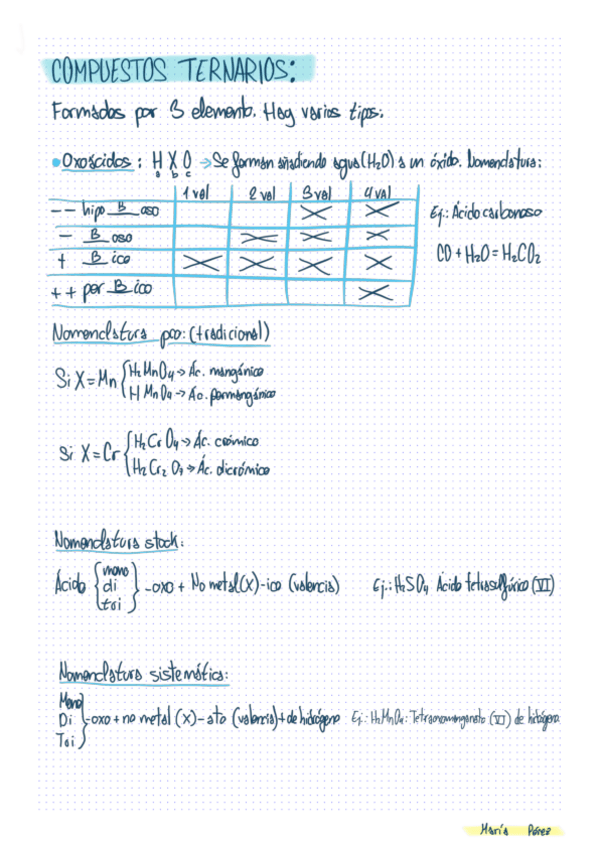 COMPUESTOS TERNARIOS:
Formados por 3 elemento. Hay varios tips:
• Oxoácidos: HXO → Se forman añadiendo agua (H2O) a un óxido. Nomenclatura:
a b c
1 val 2 val 3 val 4 val
-- hipo B oso X X
- B oso X X X
+ B ico X X X X
++ per B ico X
Ej.: Ácido carbonoso
CO + H2O = H2CO2
Nomenclatura pco: (tradicional)
Si X = Mn { H2MnO4 → Ác. mangánico
HMnO4 → Ác. permangánico
Si X = Cr { H2CrO4 → Ác. crómico
H2Cr2O7 → Ác. dicrómico
Nomenclatura stock:
mono
Ácido { di } -oxo + No metal (X) -ico (valencia) Ej.: H2SO4 Ácido tetrasulfúrico (VI)
tri
Nomenclatura sistemática:
Mono
Di } -oxo + no metal (X) - ato (valencia) + de hidrógeno Ej.: H2MnO4: Tetraoxomanganato (VI) de hidrógeno
Tri
María Pérez